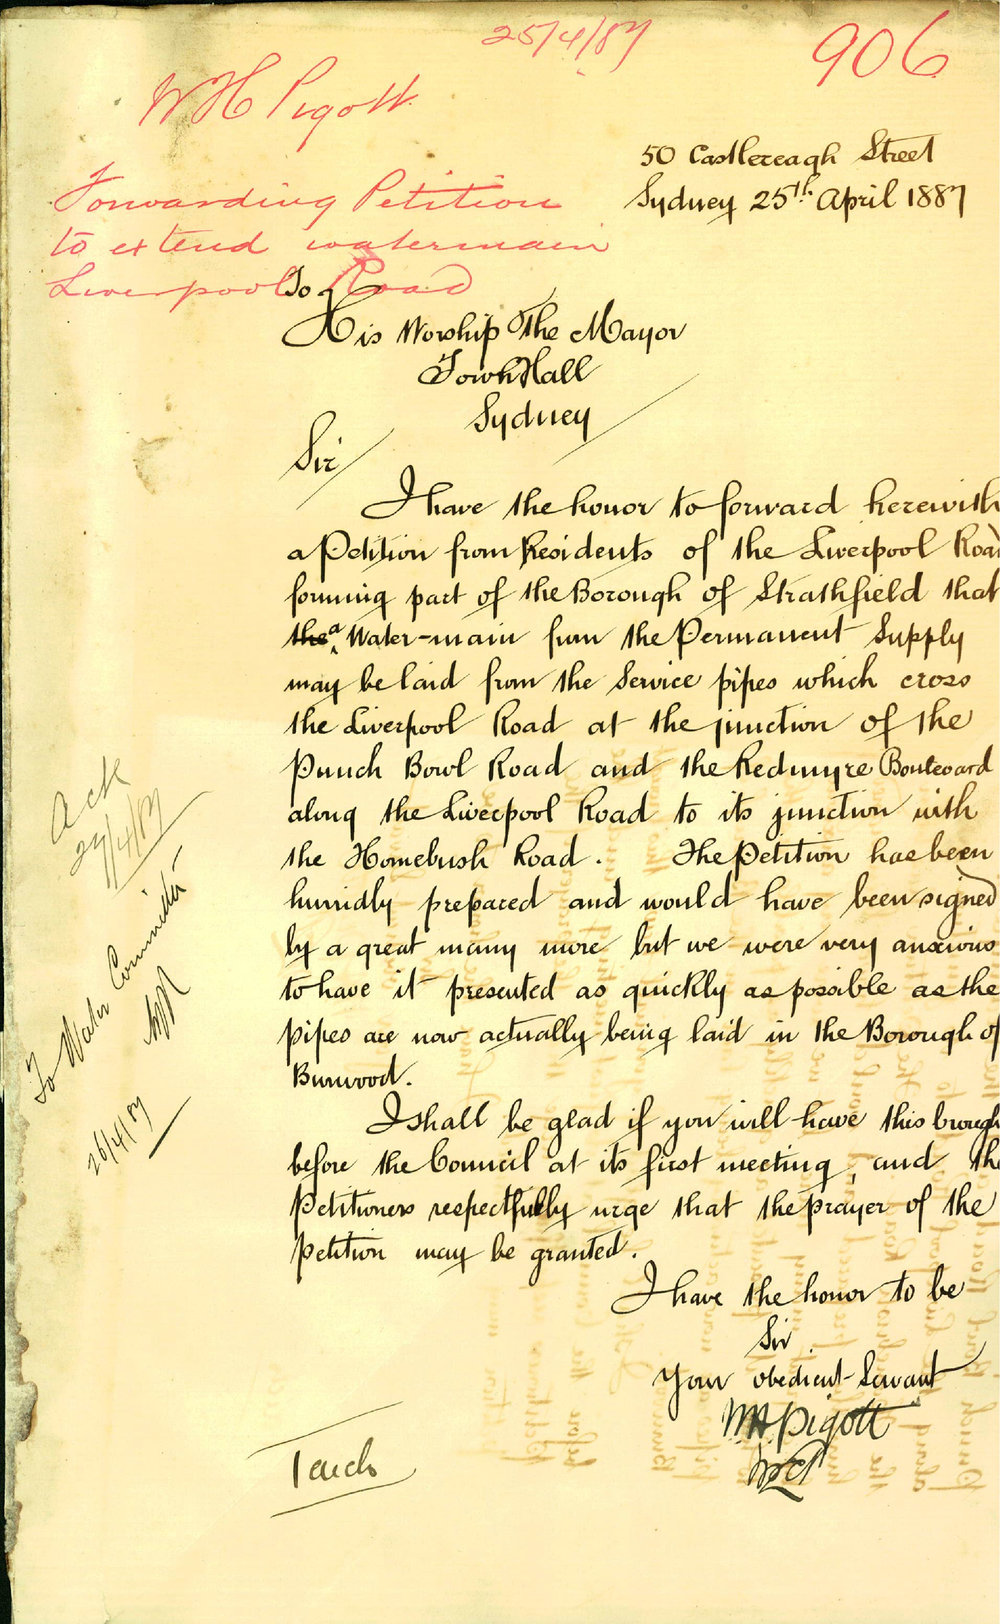 25/4/87
906
W H Pigott
Forwarding Petition
to extend watermain
Liverpool Road
50 Castlereagh Street
Sydney 25th. April 1887
To
His Worship The Mayor
Town Hall
Sydney
Sir
I have the honor to forward herewith
a Petition from Residents of the Liverpool Road
forming part of the Borough of Strathfield that
the a Water-main from the Permanent Supply
may be laid from the Service pipes which cross
the Liverpool Road at the junction of the
Punch Bowl Road and the Redmyre Boulevard
along the Liverpool Road to its junction with
the Homebush Road. The Petition has been
hurridly prepared and would have been signed
by a great many more but we were very anxious
to have it presented as quickly as possible as the
pipes are now actually being laid in the Borough of
Burwood.
I shall be glad if you will have this brough
before the Council at its first meeting, and the
Petitioners respectfully urge that the prayer of the
petition may be granted.
I have the honor to be
Sir
Your obedient Servant
W H Pigott
Ack
27/4/87
To Water Committee
26/4/87